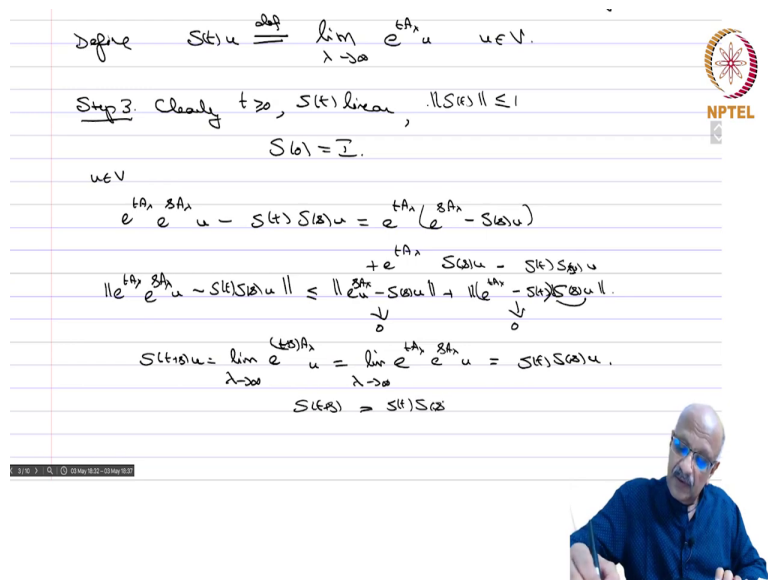 Define S(t)u ≝ lim_{λ→∞} e^{tA_λ} u u∈V.
NPTEL
Step 3. Clearly t≥0, S(t) linear, ‖S(t)‖ ≤ 1
S(0) = I.
u∈V
e^{tA_λ} e^{sA_λ} u - S(t) S(s)u = e^{tA_λ}(e^{sA_λ} - S(s)u)
+ e^{tA_λ} S(s)u - S(t) S(s)u
‖e^{tA_λ} e^{sA_λ} u - S(t)S(s)u‖ ≤ ‖e^{sA_λ}u - S(s)u‖ + ‖(e^{tA_λ} - S(t))S(s)u‖.
↓ ↓
0 0
S(t+s)u = lim_{λ→∞} e^{(t+s)A_λ} u = lim_{λ→∞} e^{tA_λ} e^{sA_λ} u = S(t) S(s)u.
S(t+s) = S(t) S(s)
3 / 10 03 May 18:32 – 03 May 18:37